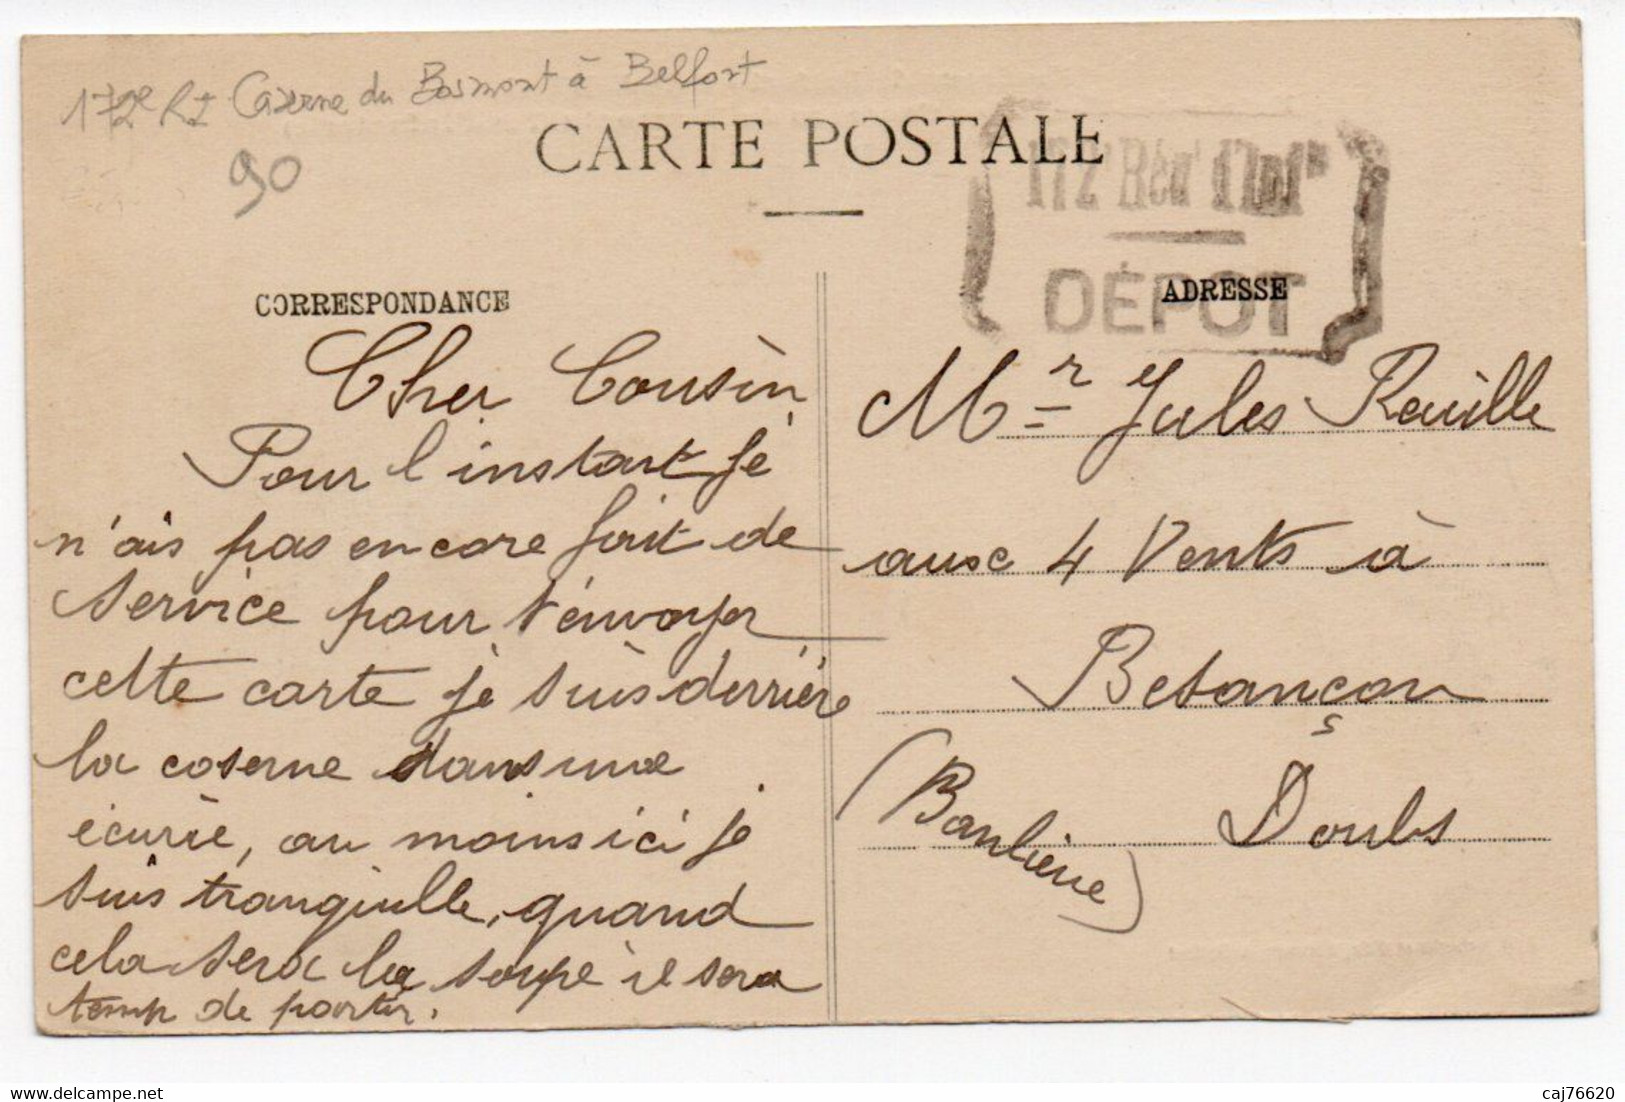 172e RI Caserne du Bosmont à Belfort
90
CARTE POSTALE
172e Rég.t Inf.ie
DÉPOT
CORRESPONDANCE
Cher Cousin
Pour l'instant je
n'ais pas encore fait de
service pour t'envoyer
cette carte je suis derrière
la caserne dans une
écurie, au moins ici je
suis tranquille, quand
cela sera la soupe il sera
temp de partir.
ADRESSE
Mr Jules Reuille
aux 4 Vents à
Besançon
(Banlieue) Doubs
caj76620